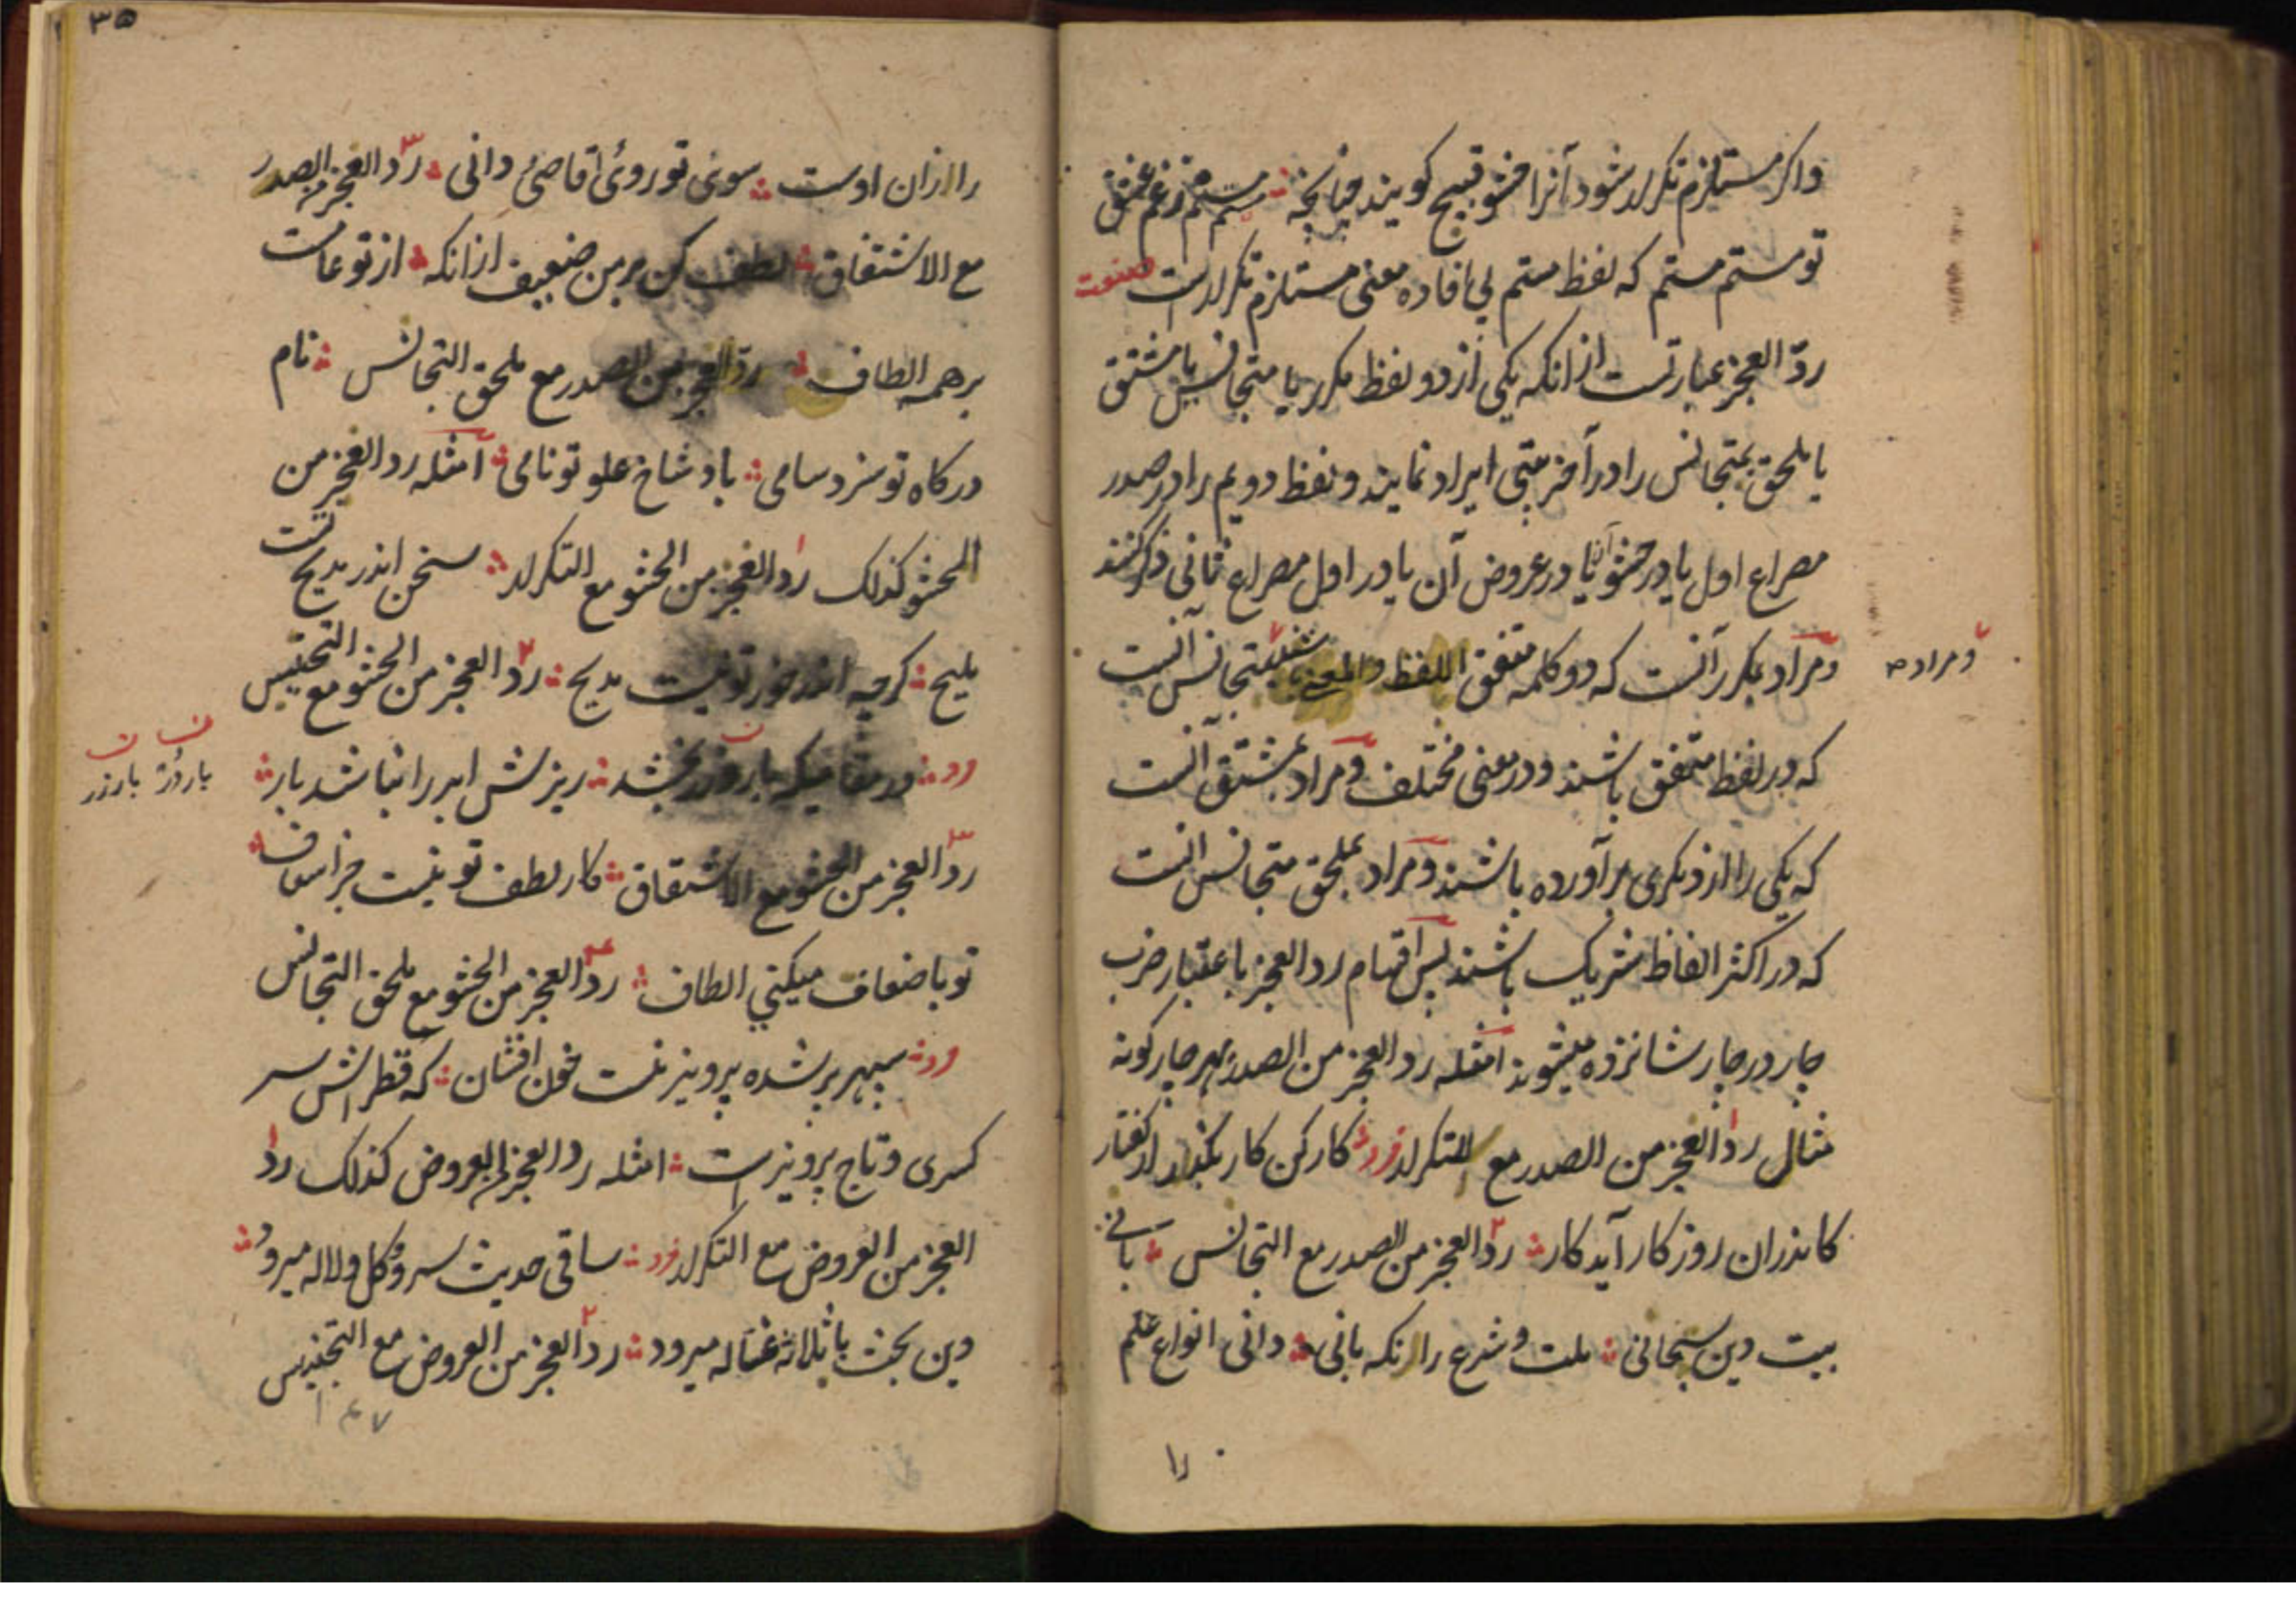 واکر مستلزم تکرار شود آنرا حشو قبیح کویند چنانچه مستم مستم زغم عشق
تو مستم مستم که لفظ مستم بی افاده معنی مستلزم تکرارست صنعت
ردّ العجز عبارتست از انکه یکی از دو لفظ مکرر یا متجانس یا مشتق
یا ملحق بمتجانس را در آخر بیتی ایراد نمایند و لفظ دویم را در صدر
مصراع اول یا در حشو آن یا در عروض آن یا در اول مصراع ثانی ذکر کنند
ومراد بمکرر آنست که دو کلمه متفق اللفظ والمعنی باشند بمتجانس آنست
ومراد
که در لفظ متفق باشند ودر معنی مختلف ومراد بمشتق آنست
که یکی را از دیکری بر آورده باشند ومراد بملحق متجانس انست
که در اکثر الفاظ شریک باشند پس اقسام رد العجز باعتبار ضرب
چار در چار شانزده میشوند امثله رد العجز من الصدر بهر چار کونه
مثال ردّ العجز من الصدر مع التکرار فرد کار کن کار بکذر از کفتار
کاندران روز کار آید کار ردّ العجز من الصدر مع التجانس بانی
بیت دین سبحانی ملت وشرع را نکه بانی دانی انواع علم
را
۳۵
را ازان اوست سوی تو روی اقاصی ودانی ردّ العجز من الصدر
مع الاشتقاق لطف کن بر من ضعیف از انکه از تو عامست
بر همه الطاف ردّ العجز من الصدر مع ملحق التجانس نام
درکاه تو سزد سامی باد شاخ علو تو نامی امثله رد العجز من
الحشو کذلک رد العجز من الحشو مع التکرار سخن اندر مدیح تست
ملیح کرچه اندر خور تو نیست مدیح ردّ العجز من الحشو مع التجنیس
ود در مقامیکه بار وزر بخشد ریزش ابر را نباشد بار
بار وزر
ردّ العجز من الحشو مع الاشتقاق کار لطف تو نیست جز اسعاف
تو باضعاف میکنی الطاف ردّ العجز من الحشو مع ملحق التجانس
ود سپهر بر شده پرویزنست خون افشان که قطر اش سر
کسری وتاج پرویزست امثله رد العجز من العروض کذلک ردّ
العجز من العروض مع التکرار فرد ساقی حدیث سرو وکل ولاله میرود
وین بحث با ثلاثه غساله میرود ردّ العجز من العروض مع التجنیس